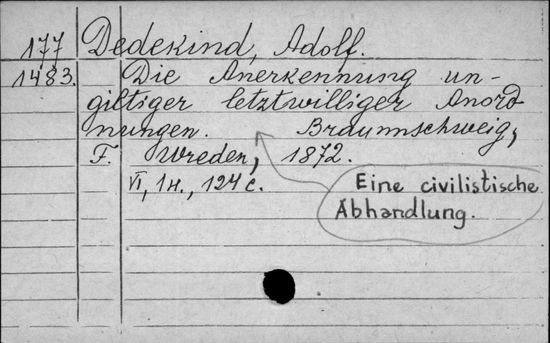 177 Dedekind, Adolf.
1483. Die Anerkennung un-
giltiger letztwilliger Anord
nungen. Braunschweig,
F. Wreden, 1872.
VI, 1н., 124 с.
Eine civilistische
Abhandlung.